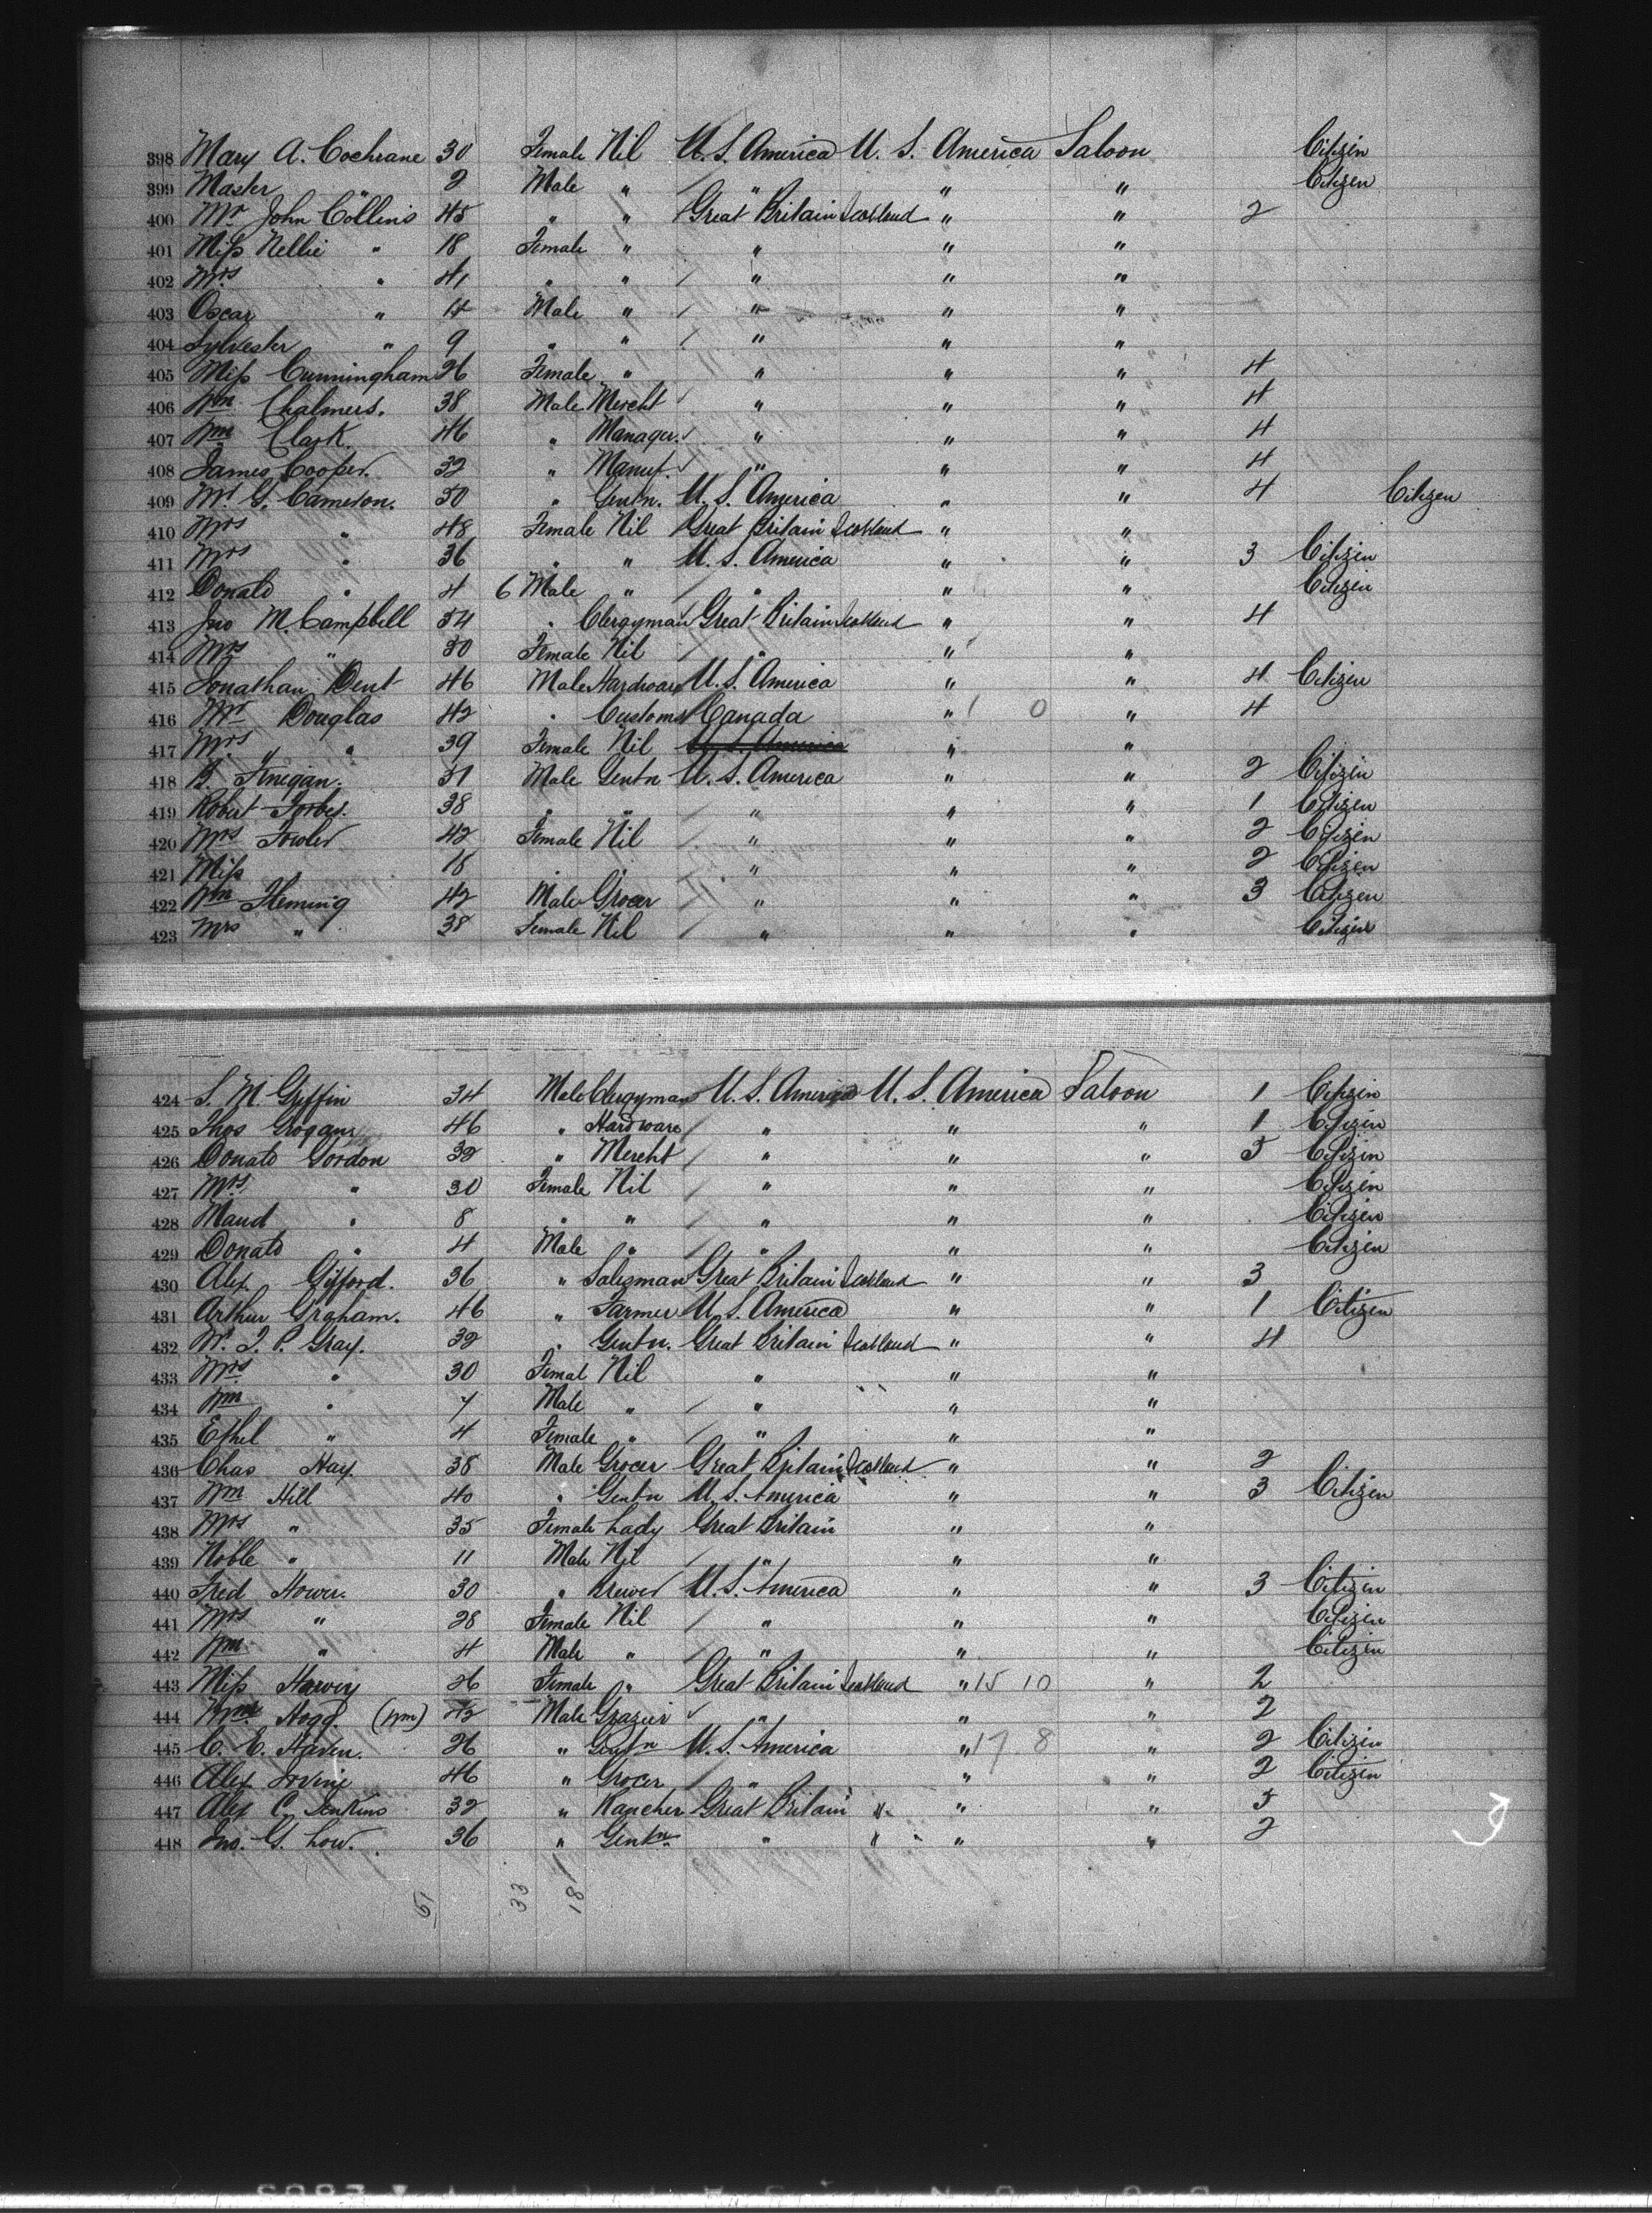 398 Mary A. Cochrane 30 Female Nil U. S. America U. S. America Saloon Citizen
399 Master " 2 Male " " " " Citizen
400 Mr John Collins 45 " " Great Britain Scotland " " 2
401 Miss Nellie " 18 Female " " " "
402 Mrs " 41 " " " " "
403 Oscar " 14 Male " " " "
404 Sylvester " 9 " " " " "
405 Miss Cunningham 26 Female " " " " 4
406 Wm Chalmers. 38 Male Mercht " " " 4
407 Wm Clark. 46 " Manager. " " " 4
408 James Cooper. 32 " Manuf. " " " 4
409 Mr G. Cameron. 50 " Gentn. U. S. America " " 4 Citizen
410 Mrs " 48 Female Nil Great Britain Scotland " "
411 Mrs " 36 " " U. S. America " " 3 Citizen
412 Donald " 4 6 Male " " " " Citizen
413 Jno M. Campbell 54 " Clergyman Great Britain Scotland " " 4
414 Mrs " 50 Female Nil " " "
415 Jonathan Dent 46 Male Hardware U. S. America " " 4 Citizen
416 Mr Douglas 42 " Customs Canada " 1 0 " 4
417 Mrs " 39 Female Nil U. S. America " "
418 B. Finegan. 31 Male Gentn U. S. America " " 2 Citizen
419 Robert Forbes. 38 " " " " " 1 Citizen
420 Mrs Fowler 42 Female Nil " " " 2 Citizen
421 Miss " 18 " " " " " 2 Citizen
422 Wm Fleming 42 Male Grocer " " " 3 Citizen
423 Mrs " 38 Female Nil " " " Citizen
424 S. M. Giffin 34 Male Clergyman U. S. America U. S. America Saloon 1 Citizen
425 Thos Grogan 46 " Hardware " " " 1 Citizen
426 Donald Gordon 32 " Mercht " " " 5 Citizen
427 Mrs " 30 Female Nil " " " Citizen
428 Maud " 8 " " " " " Citizen
429 Donald " 4 Male " " " " Citizen
430 Alex. Gifford. 36 " Salesman Great Britain Scotland " " 3
431 Arthur Graham. 46 " Farmer U. S. America " " 1 Citizen
432 W. J. P. Gray. 32 " Gentn. Great Britain Scotland " " 4
433 Mrs " 30 Femal Nil " " "
434 Wm " 7 Male " " " "
435 Ethel " 4 Female " " " "
436 Chas Hay. 38 Male Grocer Great Britain Scotland " " 2
437 Wm Hill 40 " Gentn U. S. America " " 3 Citizen
438 Mrs " 35 Female Lady Great Britain " "
439 Noble " 11 Male Nil " " "
440 Fred Hower. 30 " Brewer U. S. America " " 3 Citizen
441 Mrs " 28 Female Nil " " " Citizen
442 Wm " 4 Male " " " " Citizen
443 Miss Harvey 26 Female " Great Britain Scotland " 15 10 " 2
444 Hogg. (Wm) 42 Male Grazier " " " 2
445 C. C. Haven. 26 " Gentn U. S. America " 17. 8 " 2 Citizen
446 Alex Irvine 46 " Grocer " " " 2 Citizen
447 Alex C. Jenkins 32 " Rancher Great Britain " " " 5
448 Jno. G. Low. 36 " Gentn " " " " 2
51 33 18